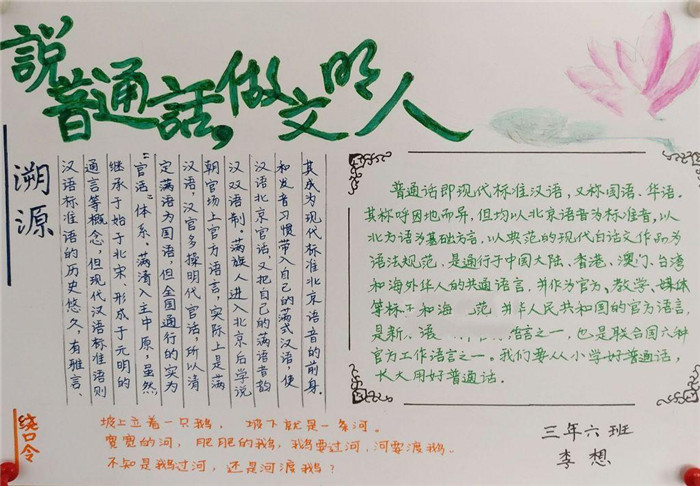 説普通話，做文明人
溯源
汉语标准语的历史悠久，有雅言、
通言等概念，但现代汉语标准语则
继承于始于北宋、形成于元明的
“官话”体系，满清入主中原，虽然
定满语为国语，但全国通行的实为
汉语，汉官多操明代官话，所以清
朝官场上官方语言，实际上是满
汉双语制。满旗人进入北京后学说
汉语北京官话，又把自己的满语音韵
和发音习惯带入自己的满式汉语，使
其成为现代标准北京语音的前身。
普通话即现代标准汉语，又称国语、华语。
其称呼因地而异，但均以北京语音为标准音，以
北方语为基础方言，以典范的现代白话文作品为
语法规范，是通行于中国大陆、香港、澳门、台湾
和海外华人的共通语言，并作为官方、教学、媒体
等标 和海 范 华人民共和国的官方语言，
是新 语 语言之一，也是联合国六种
官方工作语言之一。我们要从小学好普通话，
长大用好普通话。
绕口令
坡上立着一只鹅，坡下就是一条河。
宽宽的河，肥肥的鹅，鹅要过河，河要渡鹅。
不知是鹅过河，还是河渡鹅？
三年六班
李想